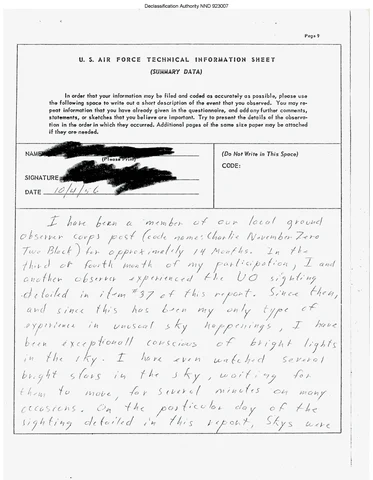 Declassification Authority NND 923007
Page 9
U. S. AIR FORCE TECHNICAL INFORMATION SHEET
(SUMMARY DATA)
In order that your information may be filed and coded as accurately as possible, please use
the following space to write out a short description of the event that you observed. You may re-
peat information that you have already given in the questionnaire, and add any further comments,
statements, or sketches that you believe are important. Try to present the details of the observa-
tion in the order in which they occurred. Additional pages of the same size paper may be attached
if they are needed.
NAME
(Please Print)
(Do Not Write in This Space)
CODE:
SIGNATURE
DATE 10/4/56
I have been a member of our local ground
observer corps post (code name: Charlie November Zero
Two Black) for approximately 14 Months. In the
third or fourth month of my participation, I and
another observer experienced the UO sighting
detailed in item #37 of this report. Since then,
and since this has been my only type of
experience in unusual sky happenings, I have
been exceptionall conscious of bright lights
in the sky. I have even watched several
bright stars in the sky, waiting for
them to move, for several minutes on many
occasions. On the particular day of the
sighting detailed in this report, Skys were